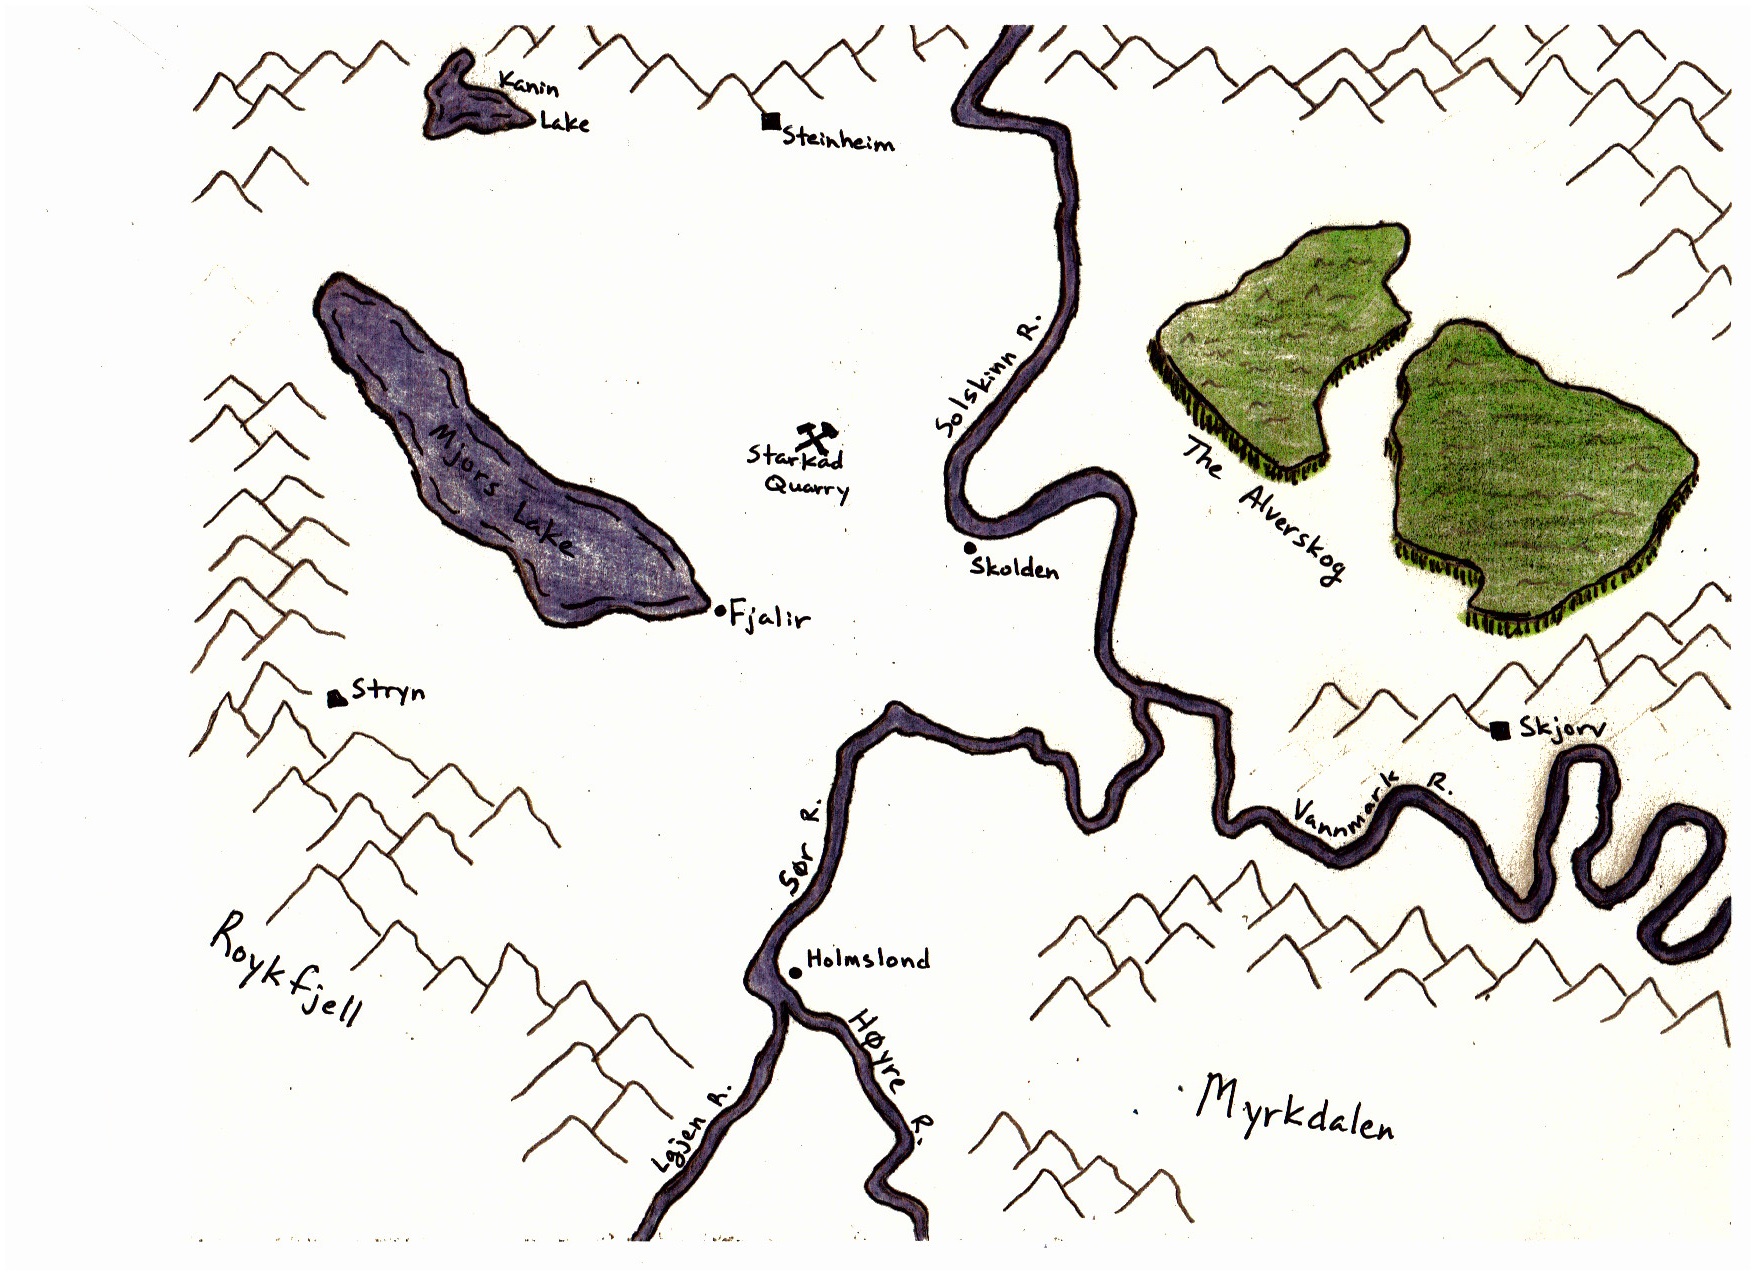 Kanin
Lake
Steinheim
Solskinn R.
Mjors Lake
Starkad
Quarry
The Alverskog
Skolden
Fjalir
Stryn
Skjorv
Vannmark R.
Sør R.
Holmslond
Roykfjell
Høyre R.
Lgjen R.
Myrkdalen